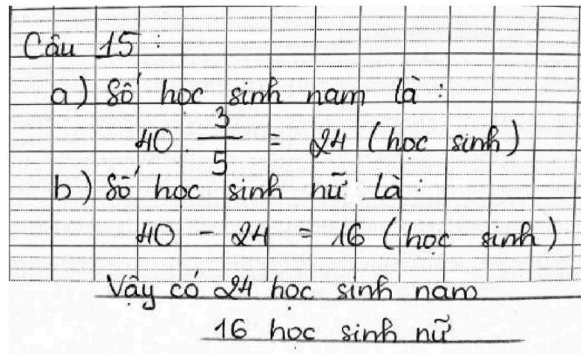 Câu 15 :
a) Số học sinh nam là :
40 . 3/5 = 24 (học sinh)
b) Số học sinh nữ là :
40 - 24 = 16 (học sinh)
Vậy có 24 học sinh nam
16 học sinh nữ